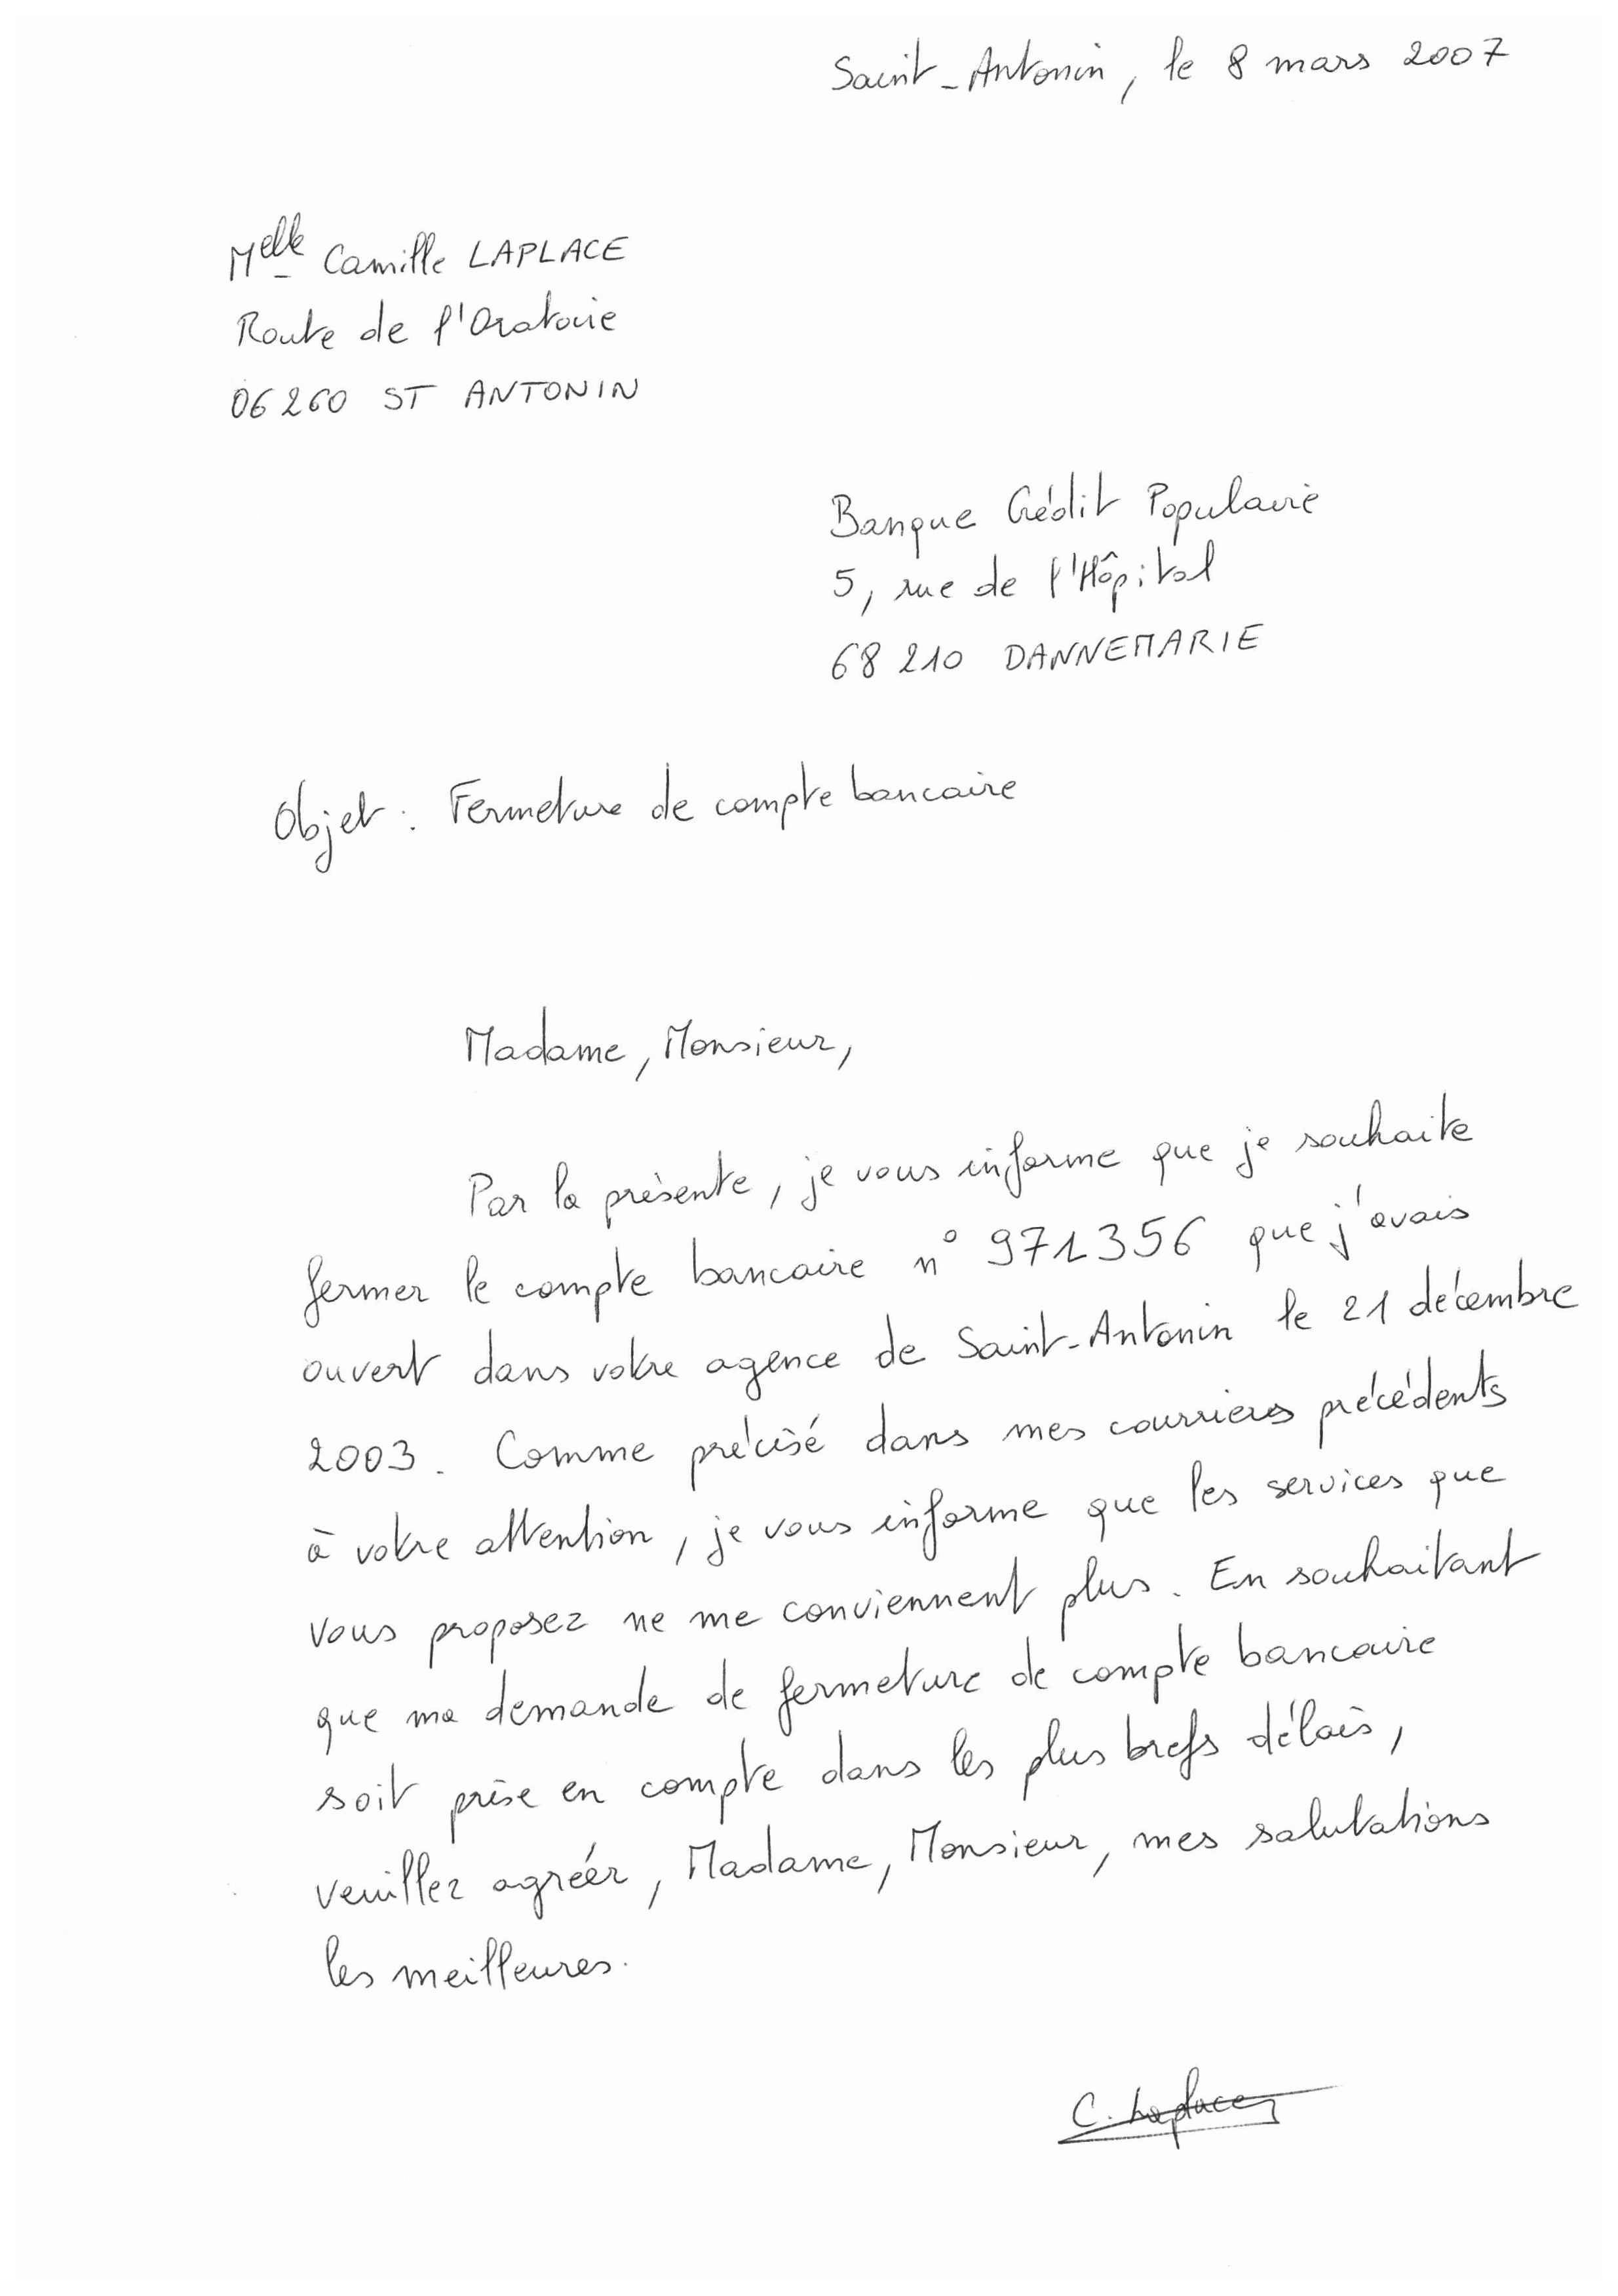 Saint-Antonin, le 8 mars 2007
Melle Camille LAPLACE
Route de l'Oratoire
06260 ST ANTONIN
Banque Crédit Populaire
5, rue de l'Hôpital
68 210 DANNEMARIE
Objet : Fermeture de compte bancaire
Madame, Monsieur,
Par la présente, je vous informe que je souhaite
fermer le compte bancaire n° 971356 que j'avais
ouvert dans votre agence de Saint-Antonin le 21 décembre
2003. Comme précisé dans mes courriers précédents
à votre attention, je vous informe que les services que
vous proposez ne me conviennent plus. En souhaitant
que ma demande de fermeture de compte bancaire
soit prise en compte dans les plus brefs délais,
veuillez agréer, Madame, Monsieur, mes salutations
les meilleures.
C. Laplace